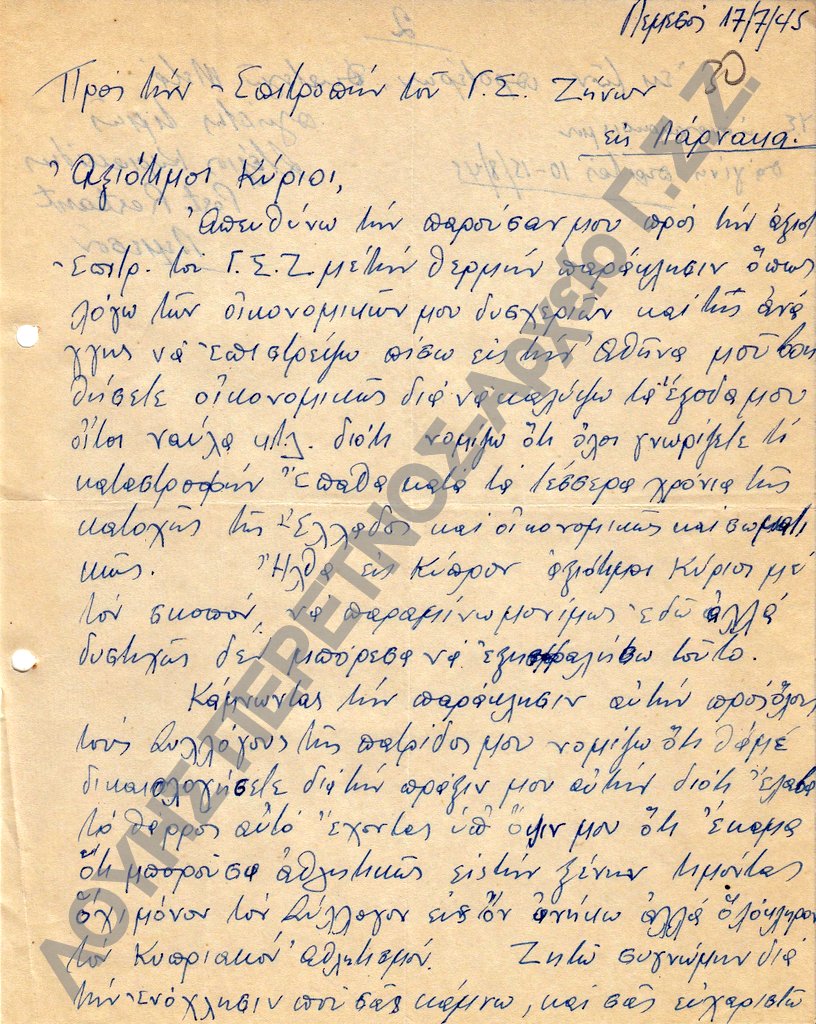 Λεμεσός 17/7/45
30
Πρός τήν Ἐπιτροπήν τοῦ Γ.Σ. Ζήνων
εἰς Λάρνακα.
Ἀξιότιμοι Κύριοι,
Ἀπευθύνω τήν παροῦσαν μου πρός τήν ἀξιοτ
Ἐπιτρ. τοῦ Γ.Σ.Ζ. μέ τήν θερμήν παράκλησιν ὅπως
λόγω τῶν οἰκονομικῶν μου δυσχεριῶν καί τῆς ἀνά
γγης νά ἐπιστρέψω πίσω εἰς τήν Ἀθήνα μοῦ βοη
θήσετε οἰκονομικῶς διά νά καλύψω τά ἔξοδα μου
οἵτοι ναῦλα κτλ. διότι νομίζω ὅτι ὅλοι γνωρίζετε τί
καταστροφήν ἔπαθα κατά τά τέσσερα χρόνια τῆς
κατοχῆς τῆς Ἑλλάδος καί οἰκονομικῶς καί σωματι
κῶς. Ἦλθα εἰς Κύπρον ἀξιότιμοι Κύριοι μέ
τόν σκοπόν νά παραμίνω μονίμως ἐδῶ ἀλλά
δυστιχῶς δέν μπόρεσα νά ἐξησφαλήσω τοῦτο.
Κάμνωντας τήν παράκλησιν αὐτήν πρός ὅλους
τούς Συλλόγους τῆς πατρίδος μου νομίζω ὅτι θά μέ
δικαιολογήσετε διά τήν πρᾶξιν μου αὐτήν διότι ἔλαβα
τό θάρρος αὐτό ἔχοντας ὑπ' ὄψιν μου ὅτι ἔκαμα
ὅτι μποροῦσα ἀθλητικῶς εἰς τήν ξένην τιμόντας
ὄχι μόνον τόν Σύλλογον εἰς ὅν ἀνήκω ἀλλά ὁλόκληρον
τόν Κυπριακόν ἀθλητισμόν. Ζητῶ συγνώμην διά
τήν ἐνόχλησιν πού σᾶς κάμνω, καί σᾶς εὐχαριστῶ
ΛΟΥΗΣ ΠΕΡΕΤΝΟΣ-Αρχείο Γ.Σ.Ζ.